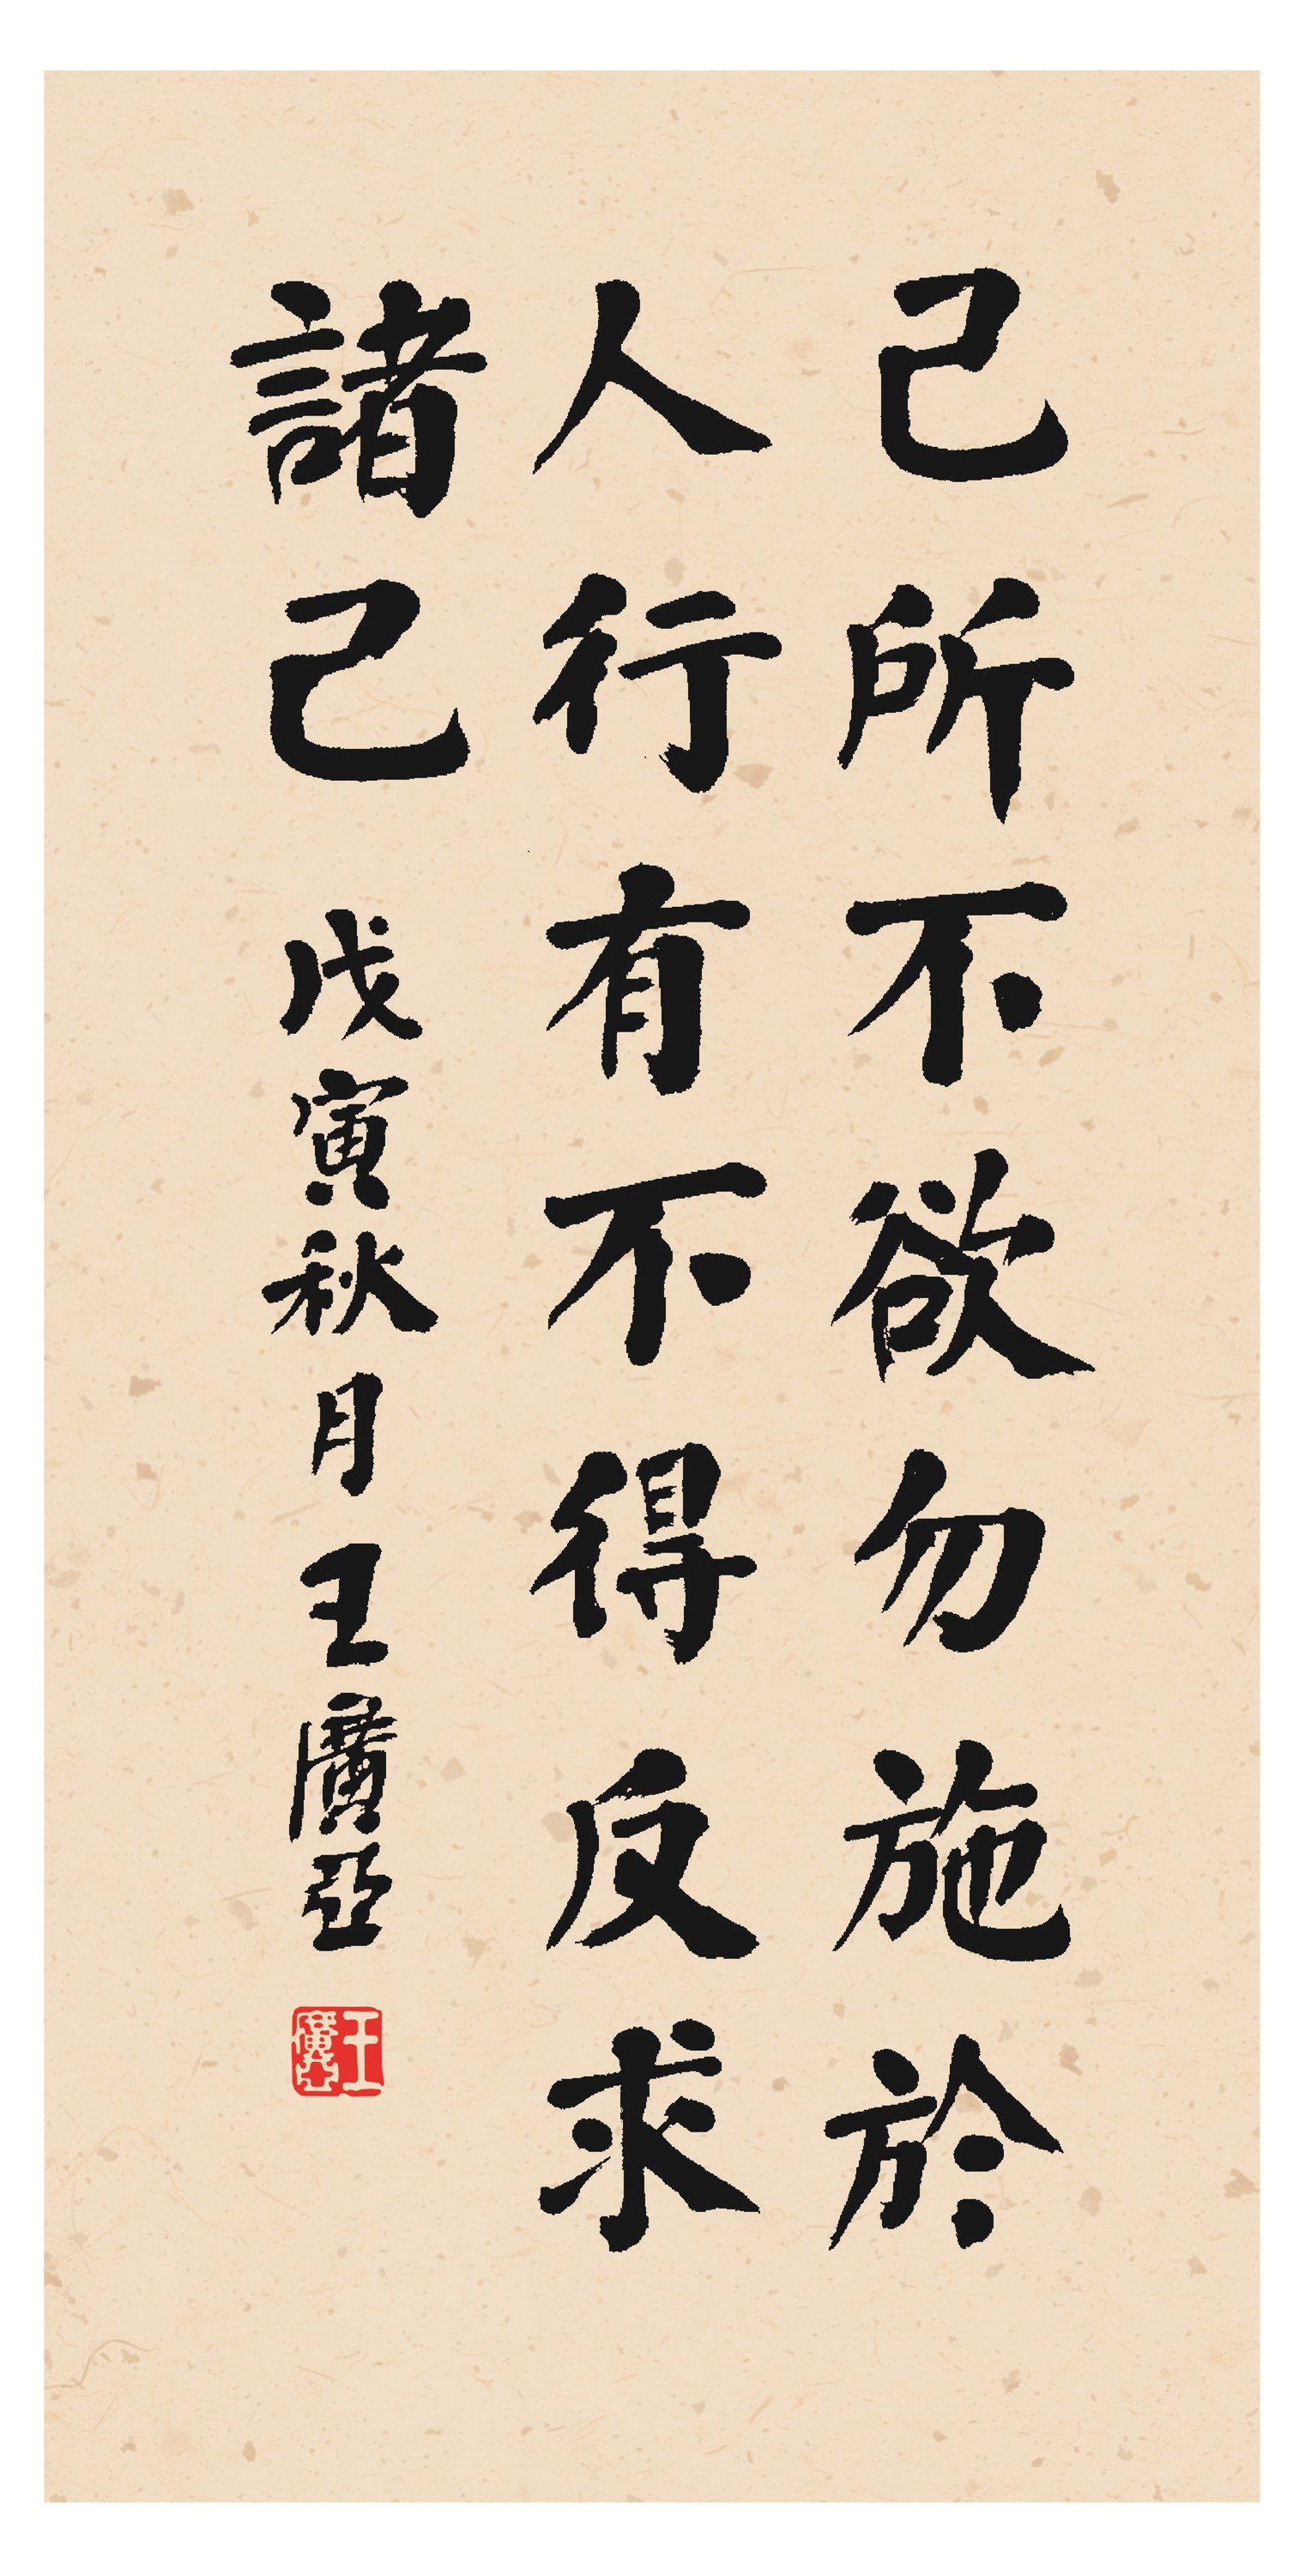 己所不欲勿施於
人行有不得反求
諸己 戊寅秋月王廣亞
王廣亞